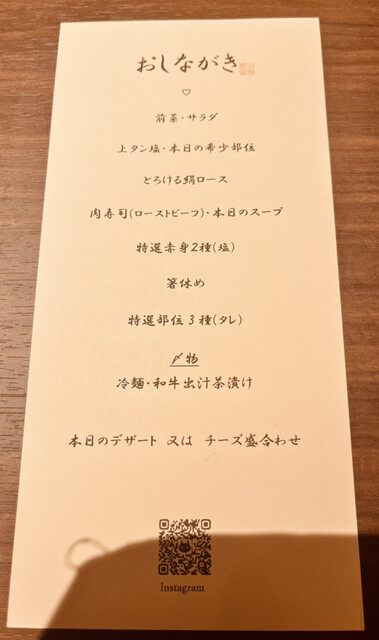 おしながき
前菜・サラダ
上タン塩・本日の希少部位
とろける絹ロース
肉寿司(ローストビーフ)・本日のスープ
特選赤身2種(塩)
箸休め
特選部位3種(タレ)
〆物
冷麺・和牛出汁茶漬け
本日のデザート 又は チーズ盛合わせ
Instagram